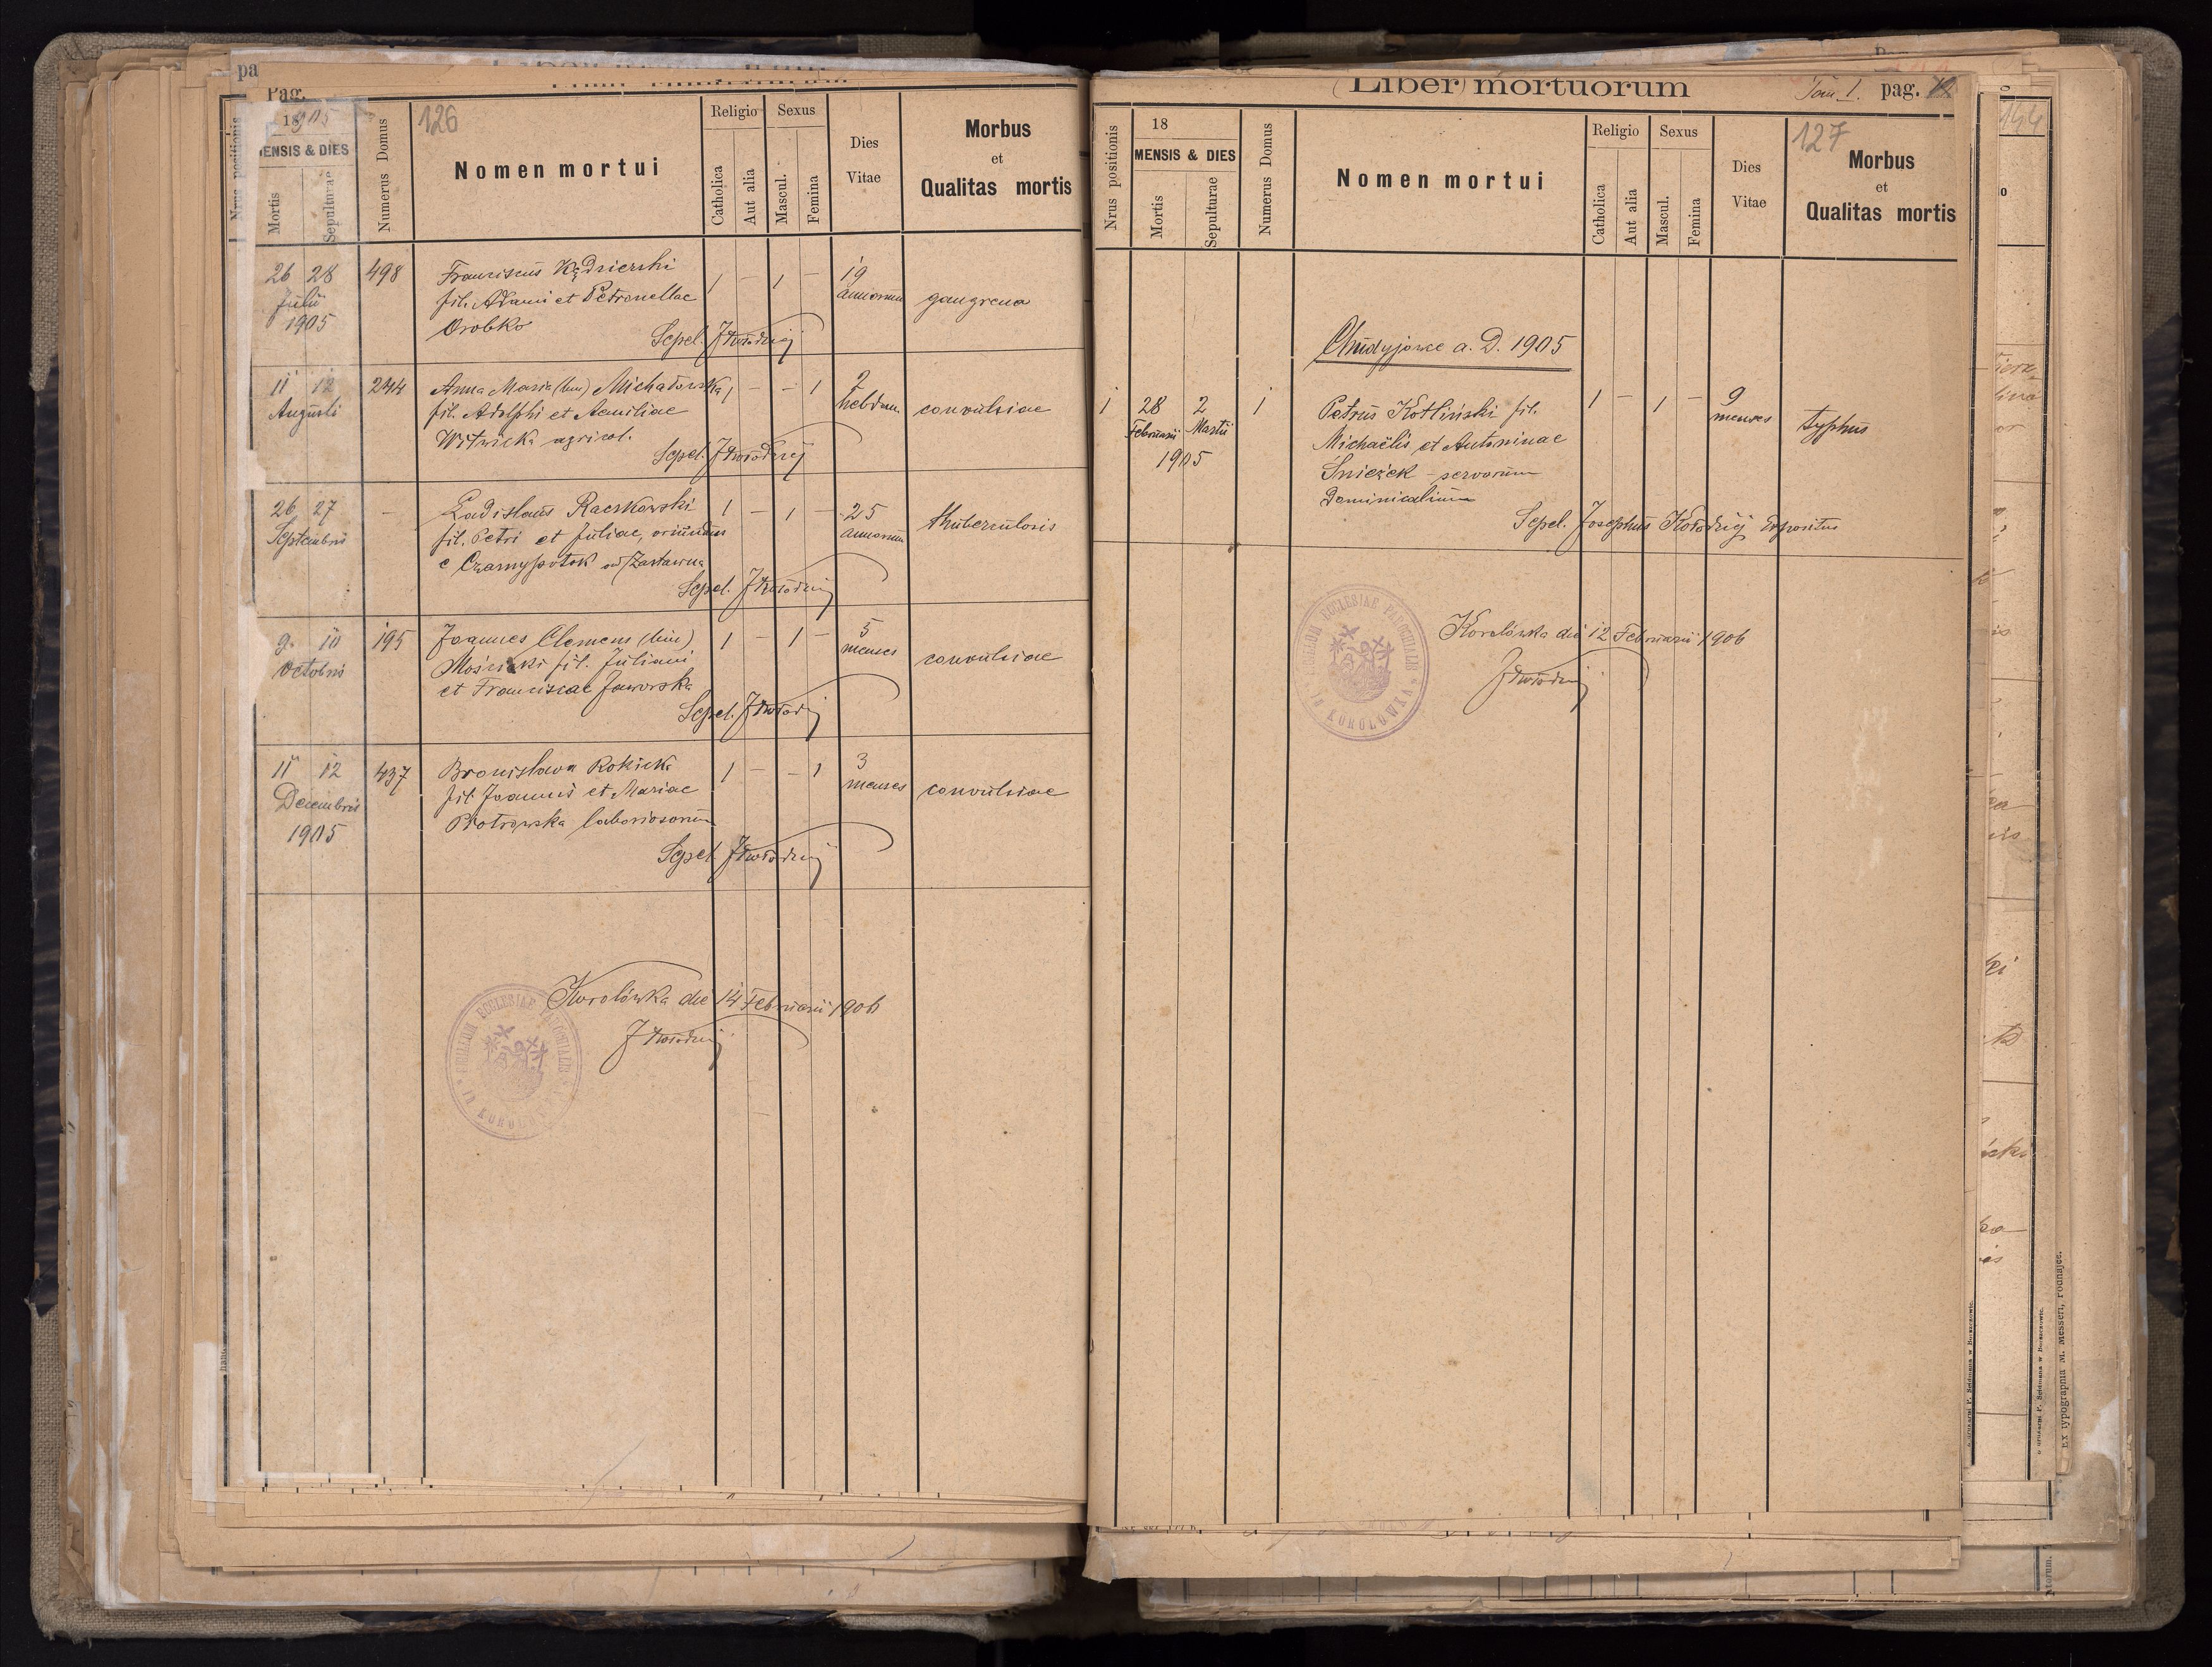 Pag.
126
1905
MENSIS & DIES
Nrus positionis
Mortis
Sepulturae
Numerus Domus
Nomen mortui
Religio
Catholica
Aut alia
Sexus
Mascul.
Femina
Dies
Vitae
Morbus
et
Qualitas mortis
26 28 498 Franciscus Kędzierski 1 – 1 – 19
Julii fil. Adami et Petronellae annorum gangrena
1905 Orobko
Sepel. JKołodziej
11 12 244 Anna Maria (bin) Michałowska 1 – – 1 2
Augusti fil. Adolphi et Aemiliae hebdom. convulsiae
Witwicka agricol.
Sepel. JKołodziej
26 27 – Ladislaus Raczkowski 1 – 1 – 25
Septembris fil. Petri et Juliae, oriundus annorum thuberculosis
e Czarnypotok ad Zastawna
Sepel. JKołodziej
9. 10 195 Joannes Clemens (bin) 1 – 1 – 5
Octobris fil. Juliani menses convulsiae
et Franciscae Jaworska
Sepel. JKołodziej
11 12 437 Bronislawa Rokicka 1 – – 1 3
Decembris fil. Joannis et Mariae menses convulsiae
1905 Piotrowska laboriosorum
Sepel. JKołodziej
Korolówka die 14 Februarii 1906
JKołodziej
SIGILLUM ECCLESIAE PAROCHIALIS
in KOROLOWKA
(Liber) mortuorum
Tom I. pag.
127
Nrus positionis
18
MENSIS & DIES
Mortis
Sepulturae
Numerus Domus
Nomen mortui
Religio
Catholica
Aut alia
Sexus
Mascul.
Femina
Dies
Vitae
Morbus
et
Qualitas mortis
Chudyjowce a. D. 1905
1 28 2 1 Petrus Kotliński fil. 1 – 1 – 9
Februarii Martii Michaëlis et Antoninae menses typhus
1905 Śnieżek – servorum
Dominicalium
Sepel. Josephus Kołodziej Expositus
Korolówka die 12 Februarii 1906
JKołodziej
SIGILLUM ECCLESIAE PAROCHIALIS
in KOROLOWKA
144
Ex typographia M. Messeri,